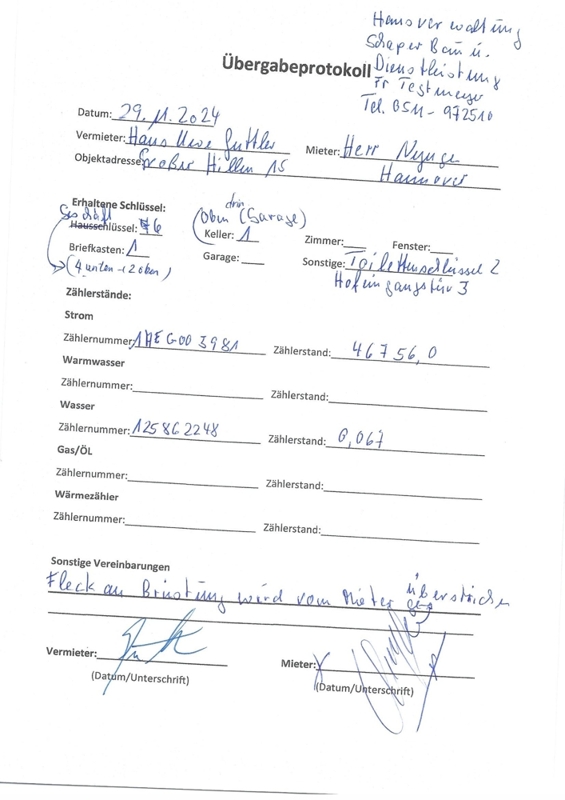 Hausverwaltung
Schaper Bau u.
Dienstleistung
Fr Testmeyer
Tel. 0511 - 972510
Übergabeprotokoll
Datum: 29.11.2024
Vermieter: Hans Uwe Mieter: Herr
Objektadresse: Großer Hillen 15 Hannover
Erhaltene Schlüssel:
drin
Geschäft Oben (Garage)
Hausschlüssel: 6 Keller: 1 Zimmer: Fenster:
Briefkasten: 1 Garage: Sonstige: Toilettenschlüssel 2
(4 unten + 2 oben) Hofeingangstür 3
Zählerstände:
Strom
Zählernummer: 1HEG00 3981 Zählerstand: 46756,0
Warmwasser
Zählernummer: Zählerstand:
Wasser
Zählernummer: 125862248 Zählerstand: 0,067
Gas/ÖL
Zählernummer: Zählerstand:
Wärmezähler
Zählernummer: Zählerstand:
Sonstige Vereinbarungen
Fleck an Brüstung wird vom Mieter überstrichen
Vermieter: Mieter:
(Datum/Unterschrift) (Datum/Unterschrift)